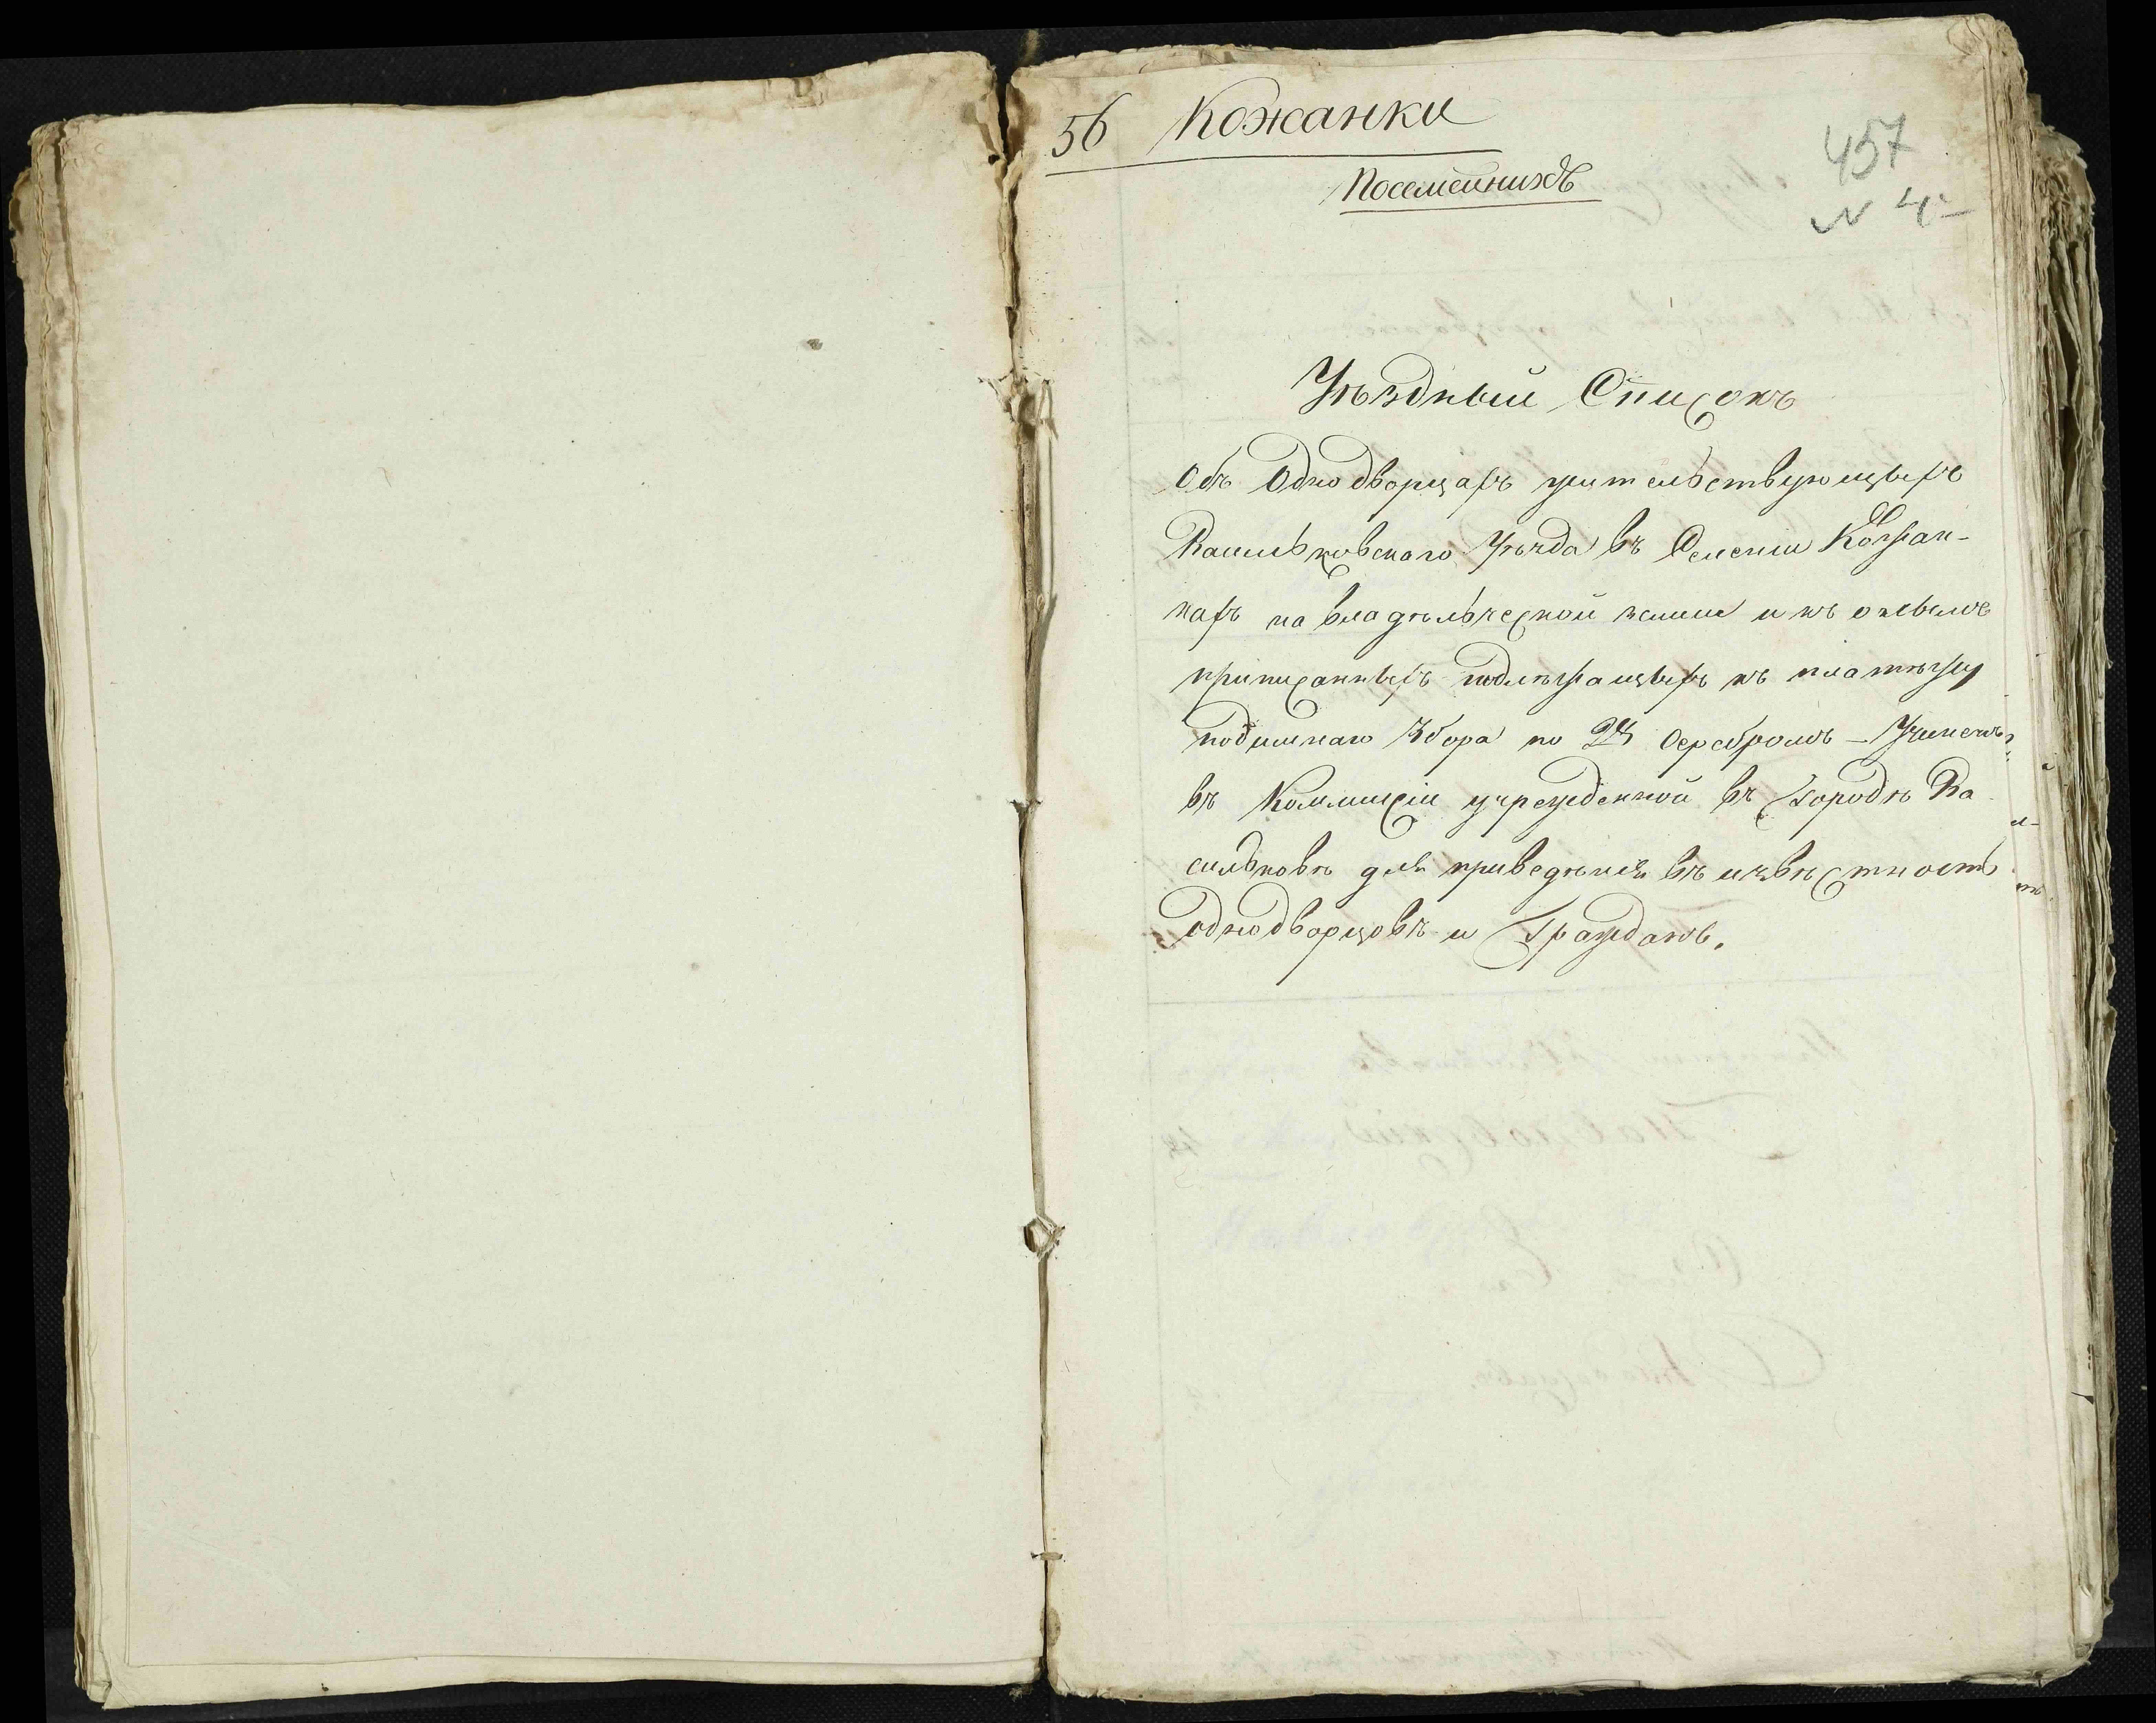 56 Кожанки
457
Посемейниходъ
№ 4
Уѣздный Списокъ
Объ Однодворцахъ жительствующихъ
Васильковскаго Уѣзда въ Селеніи Кожан-
кахъ на владѣльческой земли и къ онымъ
приписанныхъ подлежащихъ къ платежу
подимнаго Збора по 2 Серебромъ – Учиненъ
въ Коммисіи учрежденной въ Городѣ Ва
сильковѣ для приведѣнія въ извѣстность
однодворцовъ и Гражданъ.